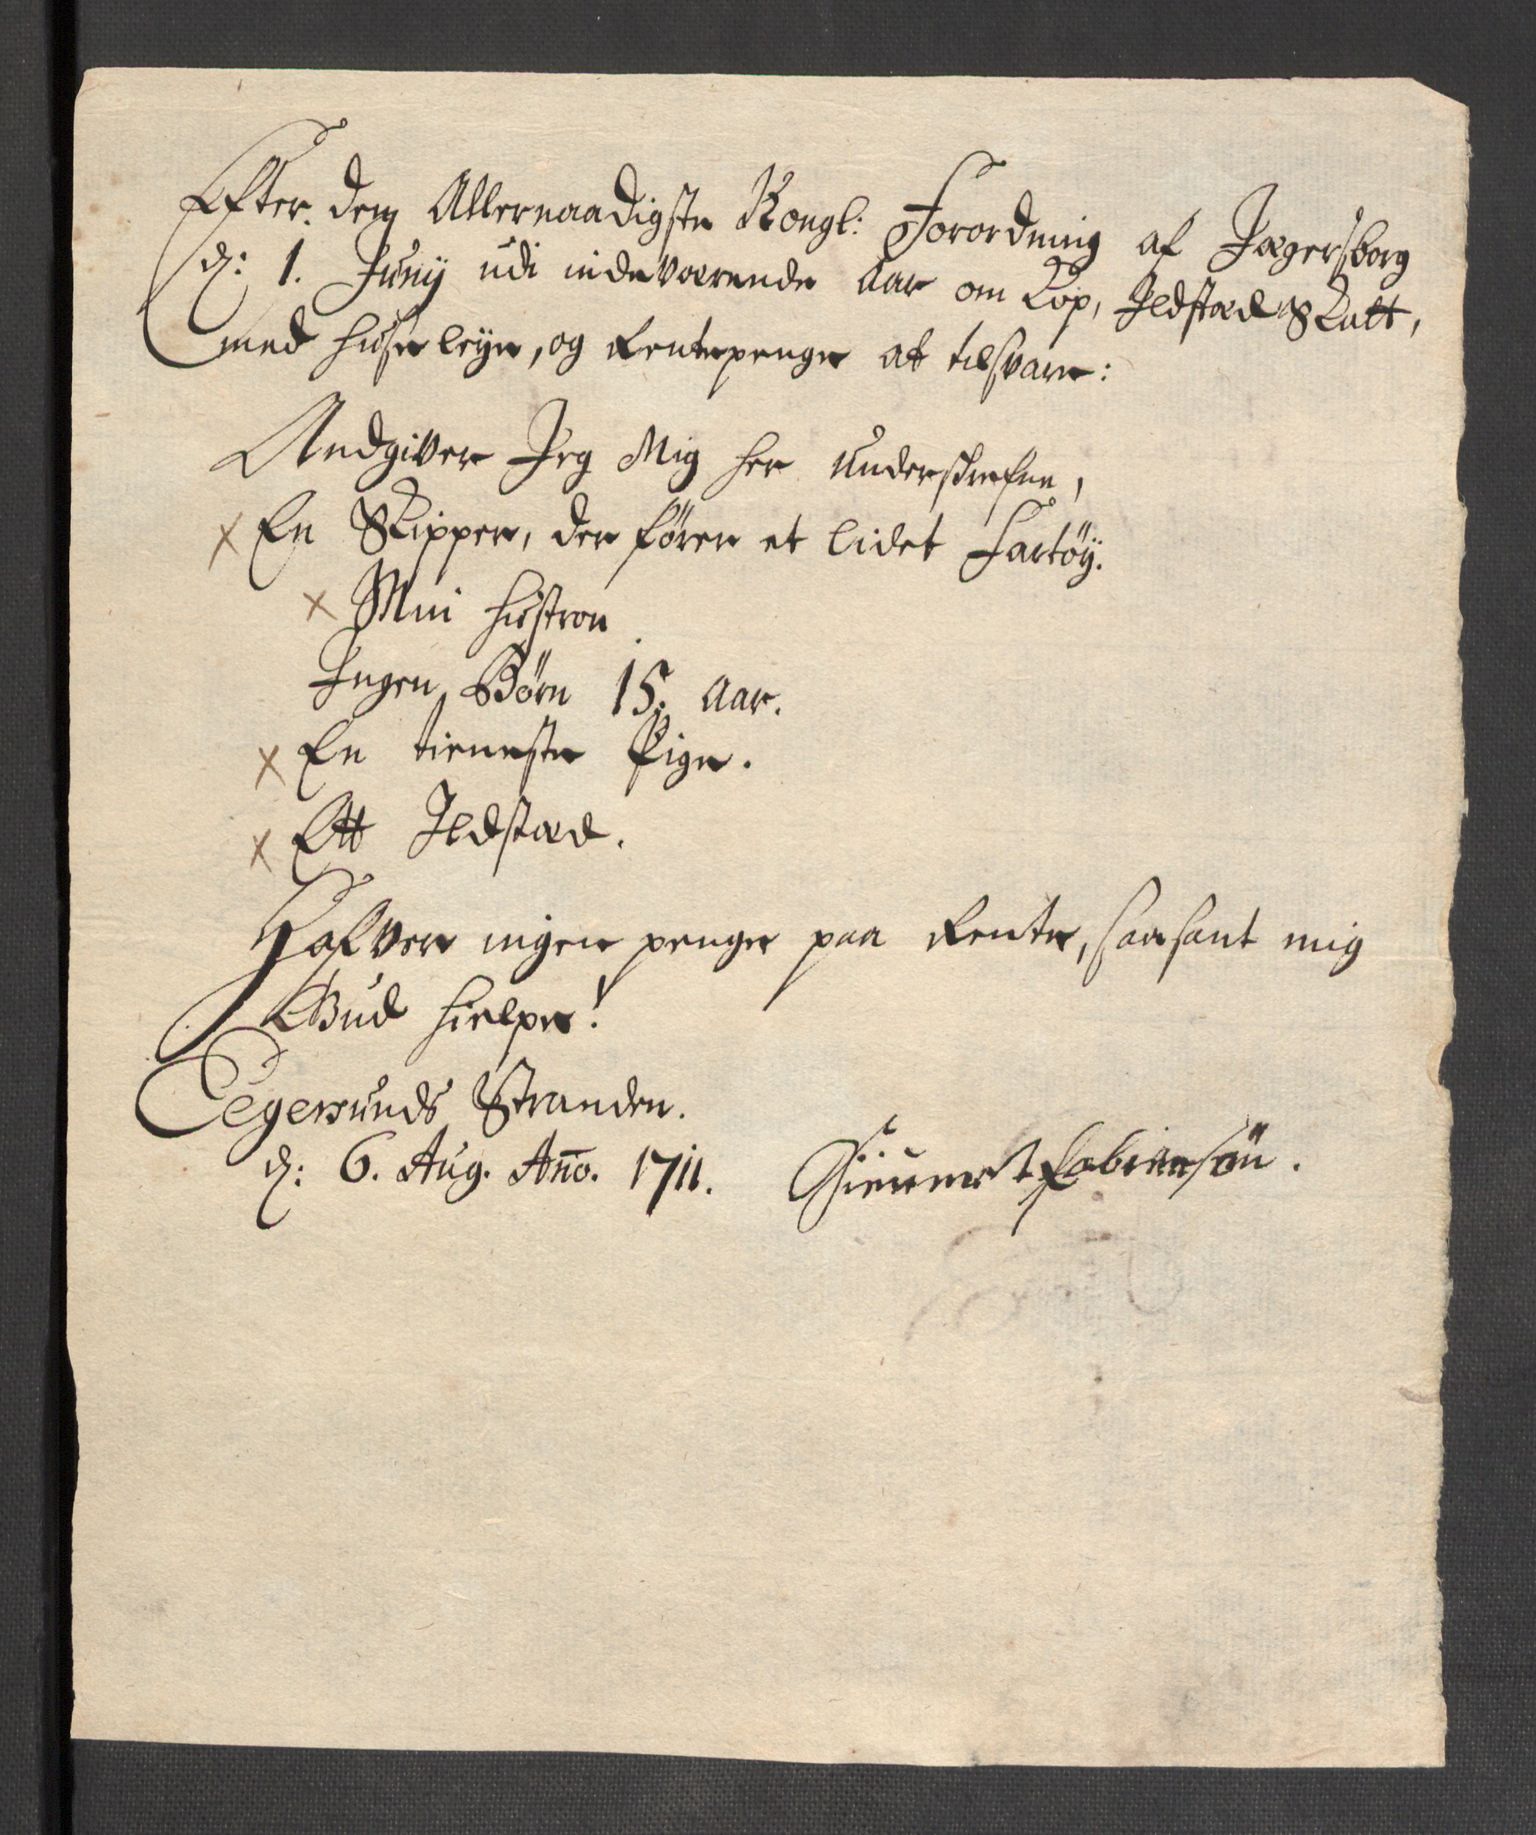 Efter den Allernaadigste Kongl: Forordning af Jægersborg
d: 1. Juny udi indeværende Aar om Kop, Ildstæd Skatt,
med huse leye, og Rentepenge at tilsvare:
Andgiver Jeg Mig her underskrefne,
x En Skipper, der fører et lidet Fartöy.
x Min hustroe
Ingen Børn 15. Aar.
x En tieneste Pige.
x Ett Ildstæd.
Hafver ingen penge paa Rente, saasant mig
Gud hielpe!
Eegersunds Stranden.
d: 6. Aug. Año. 1711. Fabiansön.